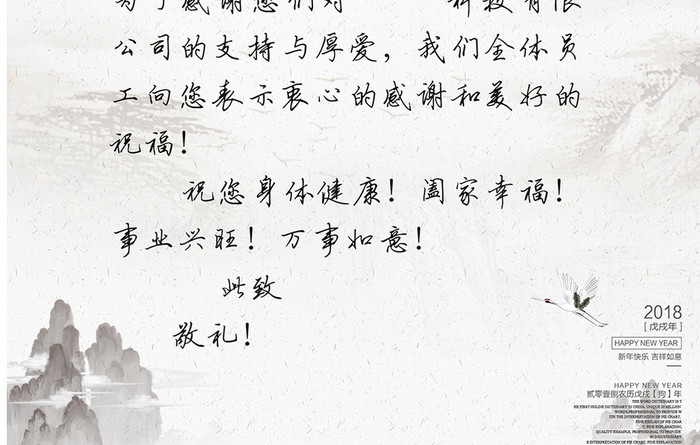 为了感谢您们对 科技有限
公司的支持与厚爱，我们全体员
工向您表示衷心的感谢和美好的
祝福！
祝您身体健康！阖家幸福！
事业兴旺！万事如意！
此致
敬礼！
2018
[戊戌年]
HAPPY NEW YEAR
新年快乐 吉祥如意
HAPPY NEW YEAR
贰零壹捌农历戊戌【狗】年
THE WORD DICTIONARY IS T
HE FIRST ONLINE DICTIONARY IN CHINA, UNIQUE 20 MILLION